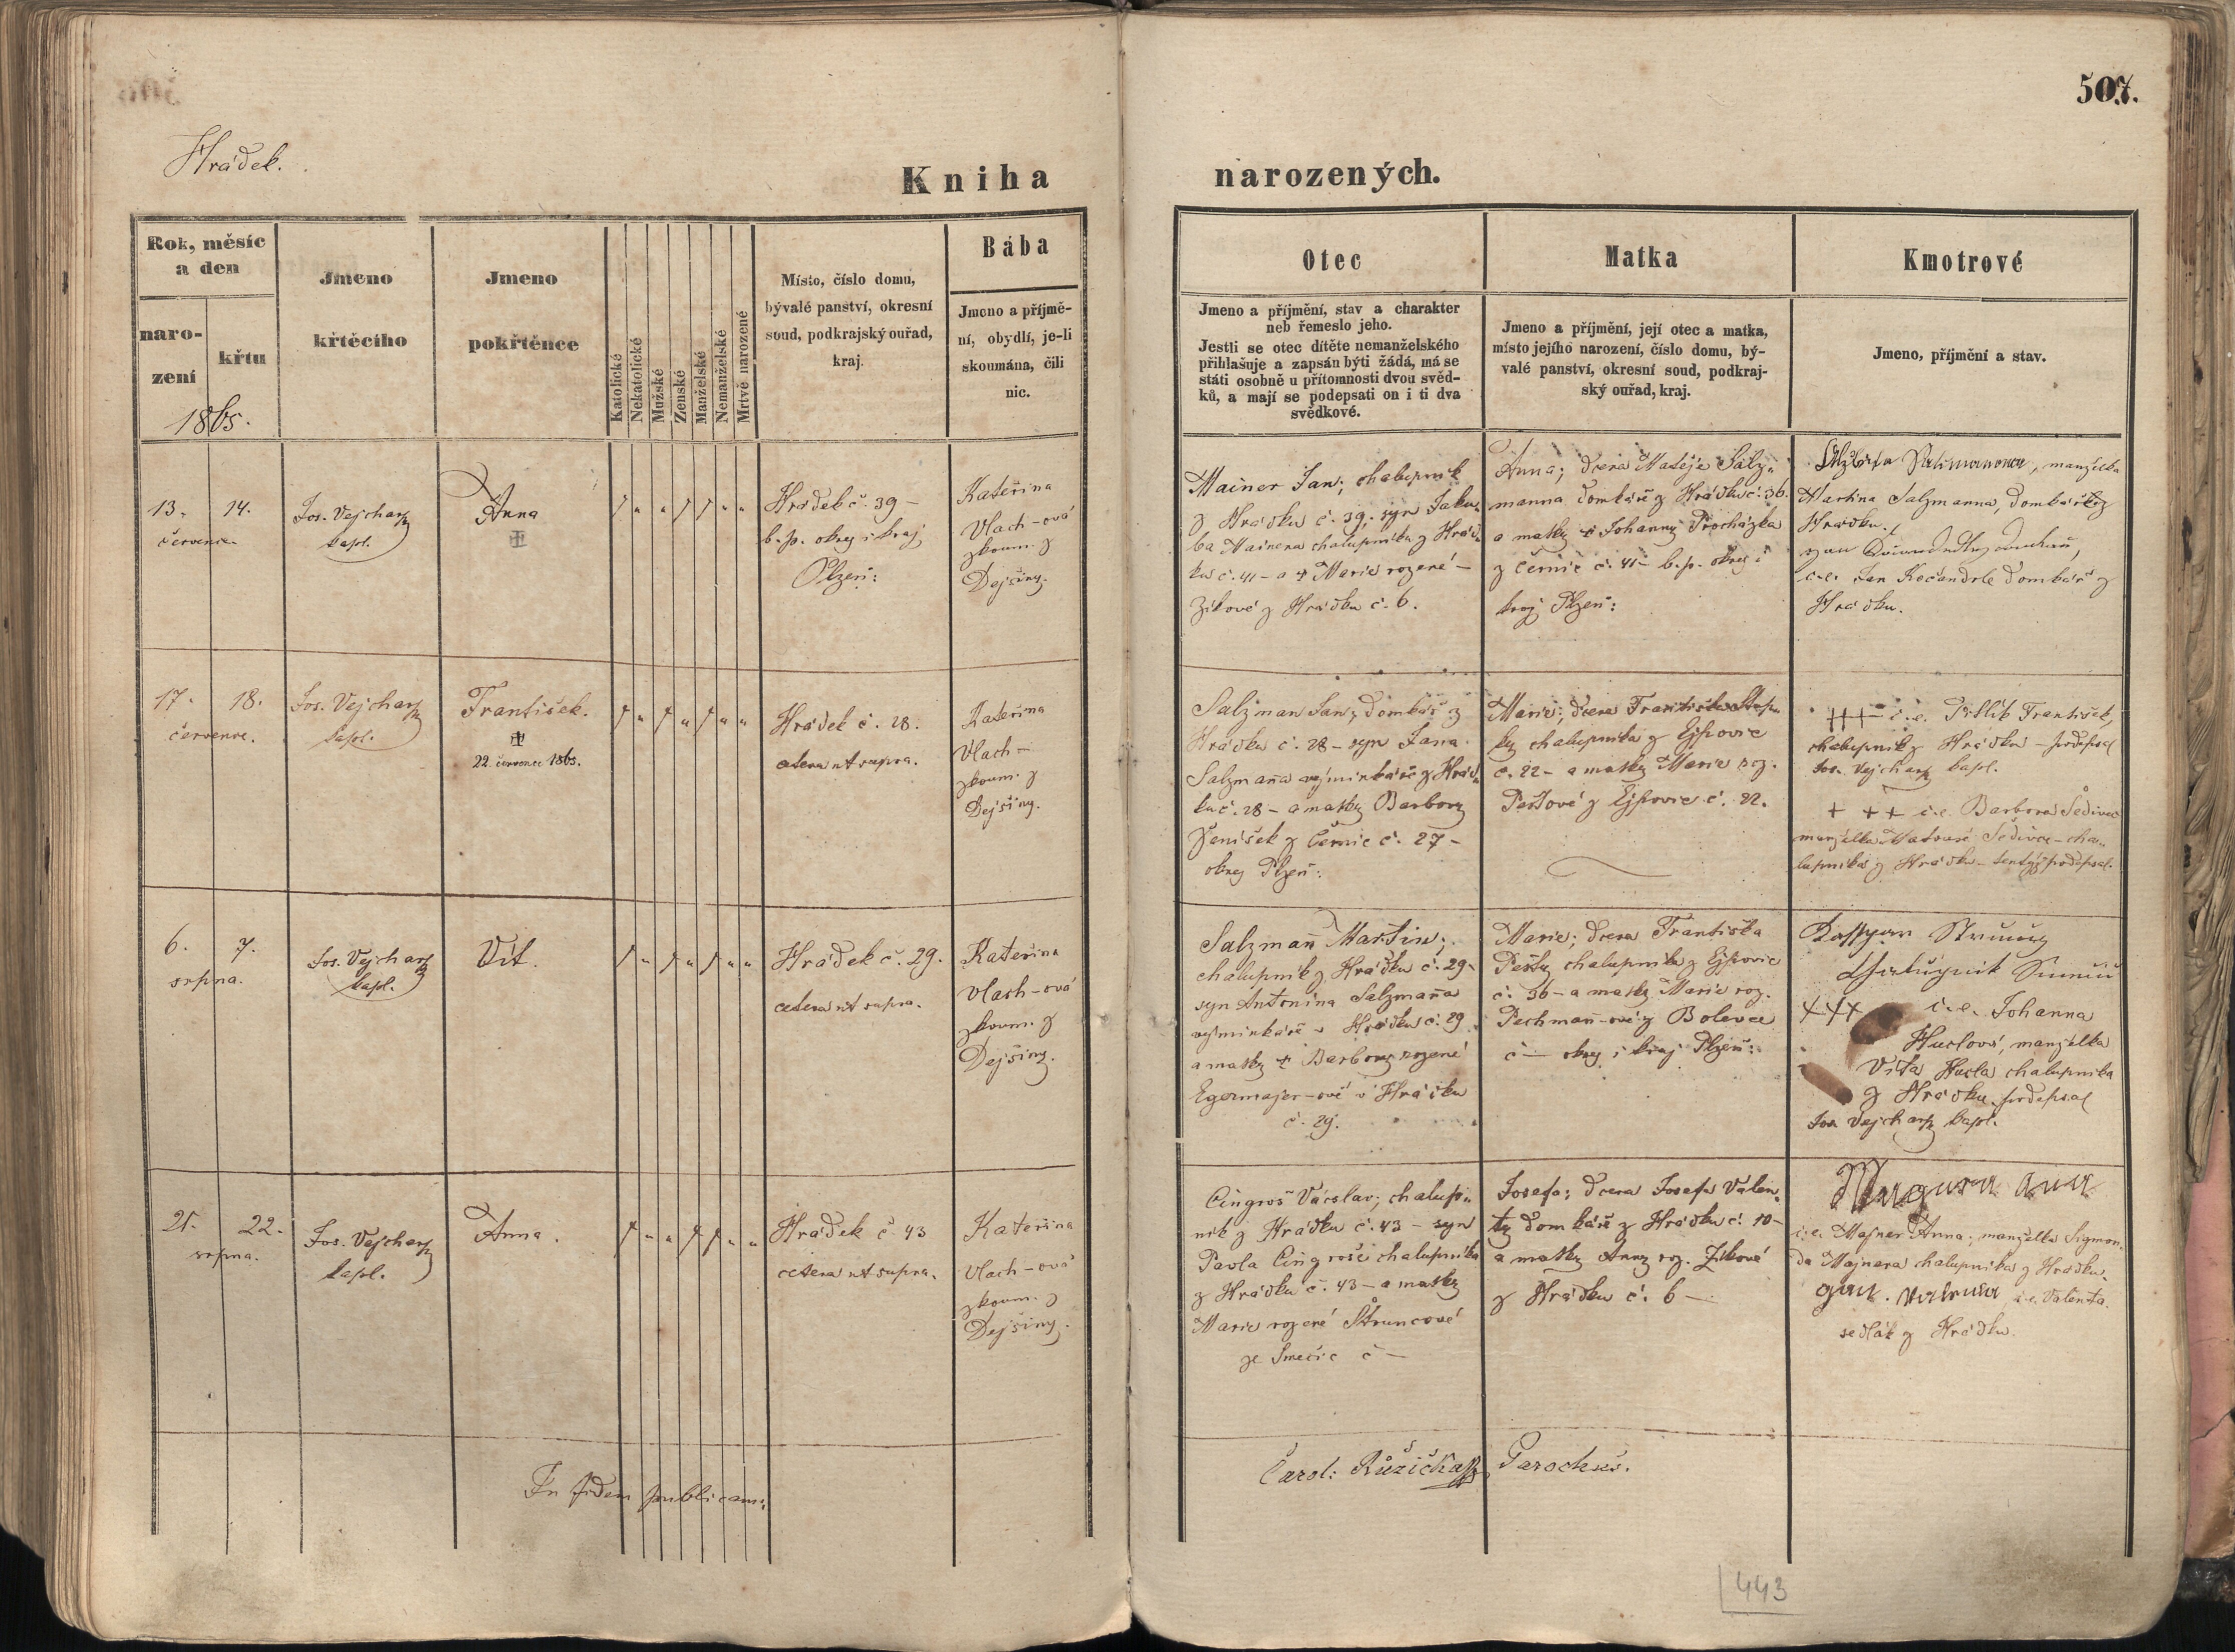 507.
Hrádek.
Kniha narozených.
Rok, měsíc
a den
naro-
zení
křtu
1865.
Jmeno
křtěcího
Jmeno
pokřtěnce
Katolické
Nekatolické
Mužské
Ženské
Manželské
Nemanželské
Mrtvě narozené
Místo, číslo domu,
bývalé panství, okresní
soud, podkrajský ouřad,
kraj.
Bába
Jmeno a příjmě-
ní, obydlí, je-li
skoumána, čili
nic.
Otec
Jmeno a příjmění, stav a charakter
neb řemeslo jeho.
Jestli se otec dítěte nemanželského
přihlašuje a zapsán býti žádá, má se
státi osobně u přítomnosti dvou svěd-
ků, a mají se podepsati on i ti dva
svědkové.
Matka
Jmeno a příjmění, její otec a matka,
místo jejího narození, číslo domu, bý-
valé panství, okresní soud, podkraj-
ský ouřad, kraj.
Kmotrové
Jmeno, příjmění a stav.
13. 14.
července
Jos. Vejchar
kapl.
Anna
Hrádek č. 39 –
b. p. okres i kraj
Plzeň:
Kateřina
Vlach-ová
zkoum. z
Dejšiny.
Mainer Jan; chalupník
z Hrádku č. 39; syn Jaku-
ba Mainera chalupníka z Hrád-
ku č. 41 – a † Marie rozené –
Zikové z Hrádku č. 6.
Anna; dcera Matěje Salz-
manna domkáře z Hrádku č. 36.
a matky † Johanny Procházka
z Černic č. 41 – b. p. okres i
kraj Plzeň:
manželka
Martina Salzmanna, domkáře z
Hrádku.
i.e. Jan Kočandrle domkář z
Hrádku.
17. 18.
července.
Jos. Vejchar
kapl.
František.
22. července 1865.
Hrádek č. 28.
cetera ut supra.
Kateřina
Vlach –
zkoum. z
Dejšiny.
Salzman Jan, domkář z
Hrádku č. 28 – syn Jana
Salzmaña vejminkáře z Hrád-
ku č. 28 – a matky Barbory
Jeníšek z Černic č. 27 –
okres Plzeň:
Marie; dcera Františka
chalupníka z Ejpovic
č. 22 – a matky Marie roz.
Pešlové z Ejpovic č. 22.
+++ i.e. František,
chalupník z Hrádku – podepsal
Jos. Vejchar kapl.
+ ++ i.e. Barbora Šedivec
manželka Matouše Šedivce – cha-
lupníka z Hrádku – tentýž podepsal.
6. 7.
srpna.
Jos. Vejchar
kapl.
Vít.
Hrádek č. 29.
cetera ut supra.
Kateřina
Vlach-ová
zkoum. z
Dejšiny.
Salzmañ Martin;
chalupník z Hrádku č. 29 –
syn Antonína Salzmaña
vejminkáře v Hrádku č. 29
a matky † Barbory rozené
Egermajer-ové v Hrádku
č. 29.
Marie; dcera Františka
Pešky chalupníka z Ejpovic
č. 36 – a matky Marie roz.
Pechmañ-ové z Bolevce
č – okres i kraj Plzeň:
+++ i.e. Johanna
Huclová, manželka
Víta Hucla chalupníka
z Hrádku podepsal
Jos. Vejchar kapl.
21. 22.
srpna.
Jos. Vejchar
kapl.
Anna.
Hrádek č. 43
cetera ut supra.
Kateřina
Vlach-ová
zkoum. z
Dejšiny.
Cingroš Václav; chalup-
ník z Hrádku č. 43 – syn
Pavla Cingroše chalupníka
z Hrádku č. 43 – a matky
Marie rozené Štruncové
ze Smečic č –
Josefa; dcera Josefa Valen-
ty domkáře z Hrádku č. 10 –
a matky Anny roz. Zikové
z Hrádku č. 6 –
i.e. Majner Anna; manželka Sigmun-
da Majnera chalupníka z Hrádku.
i.e. Valenta.
sedlák z Hrádku.
In fidem publicam:
Carol: Růžička Parochus.
443